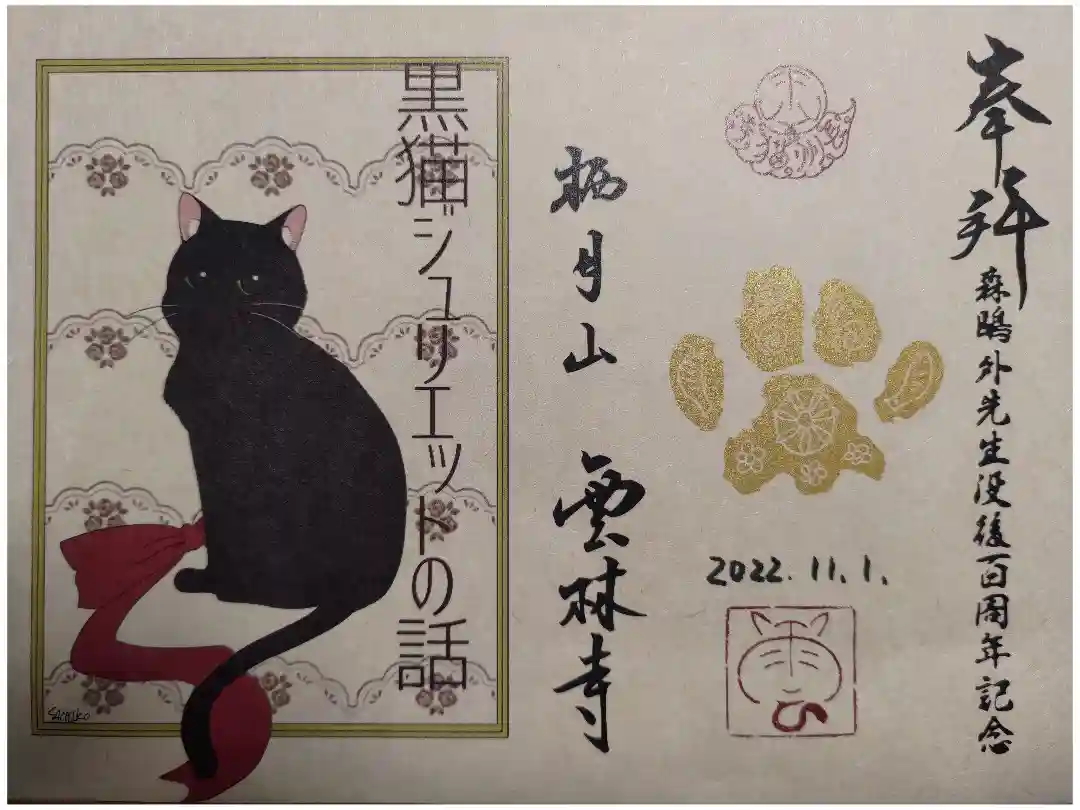 奉拝
森鴎外先生没後百周年記念
2022.11.1.
栖月山 雲林寺
黒猫ジュリエットの話
SACHIKO